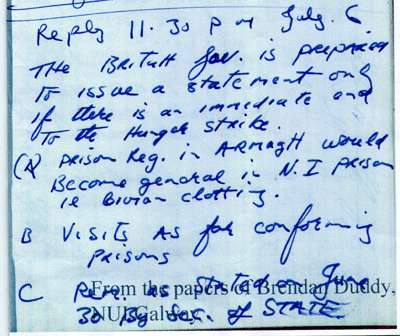 Reply 11.30 p m July. 6
THE British Gov. is preparing
To issue a statement only
if there is an immediate end
To the Hunger strike.
(A) prison Reg. in ARMAGH would
Become general in N.I prison
ie Civian clothing.
B Visits as for conforming
prisons
C Rem. as Stated on June
30 By Sec. of STATE.
From the papers of Brendan Duddy,
NUI Galway